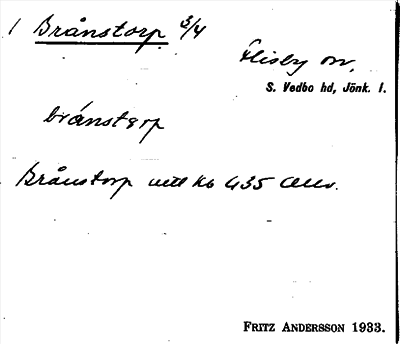 1 Brånstorp 3/4
Flisby sn.
S. Vedbo hd, Jönk. l.
brånstɐrp
Brånstorp utt kb 435 Allv.
FRITZ ANDERSSON 1933.